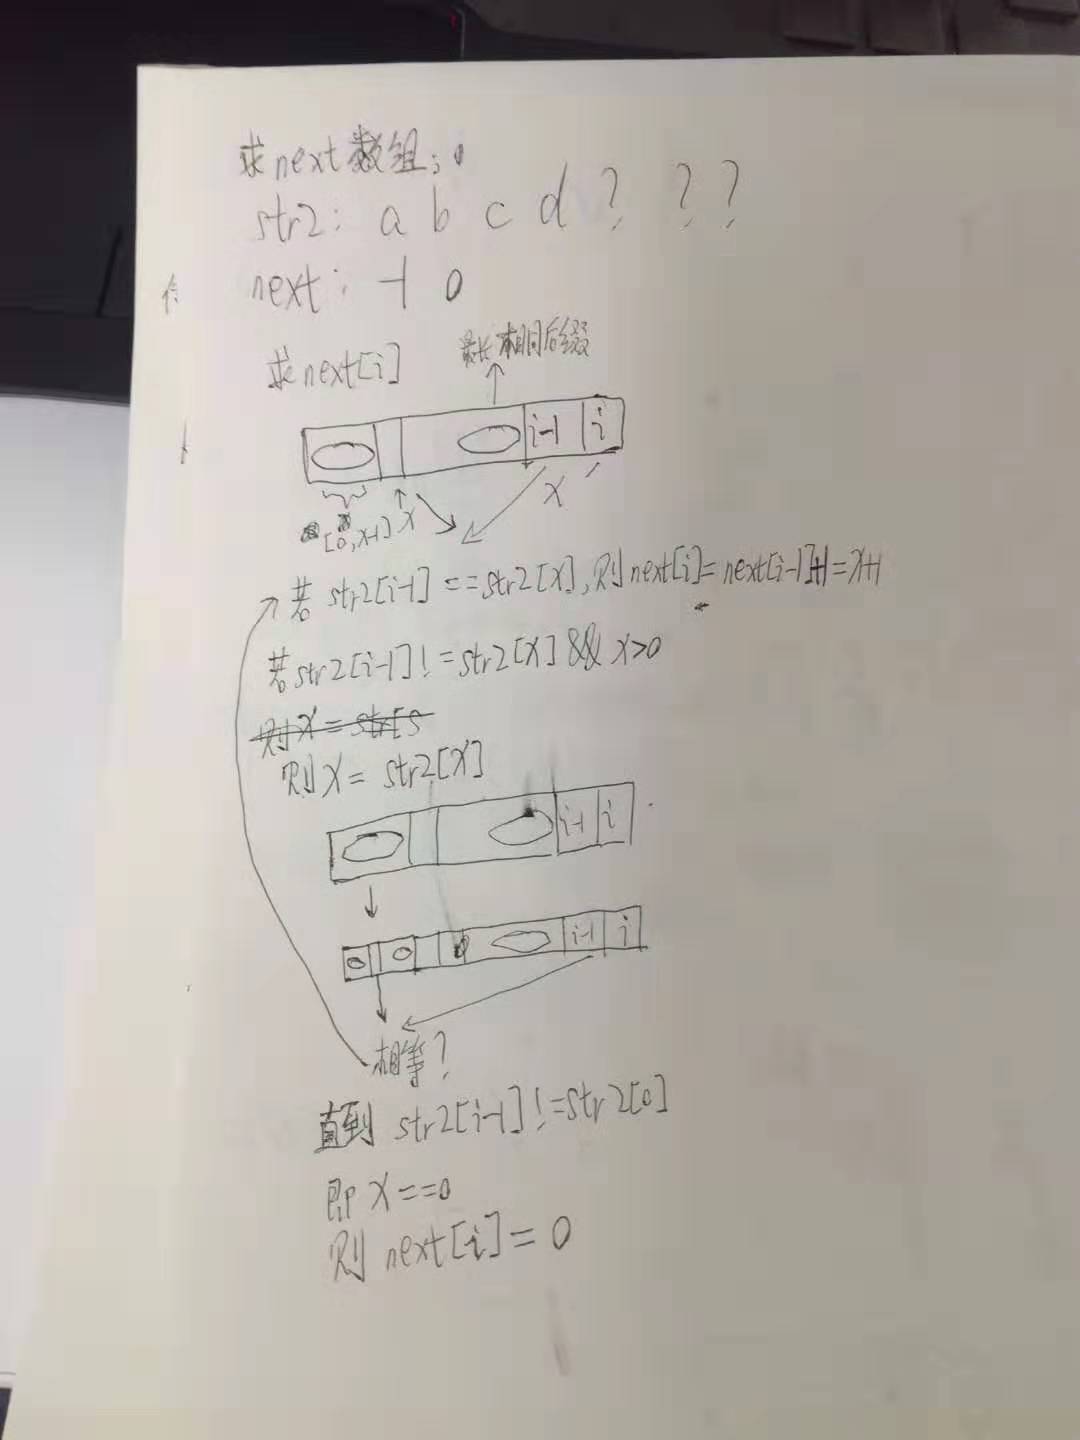 求next数组:
str2: a b c d ? ? ?
next: -1 0
求next[i]
最长相同后缀
i-1 i
[0,x-1] x
x
若 str2[i-1]==str2[x],则next[i]=next[i-1]+1=x+1
若str2[i-1]!=str2[x] && x>0
则x=str[s
则x=str2[x]
i-1 i
i-1 i
相等?
直到 str2[i-1]!=str2[0]
即 x==0
则 next[i]=0